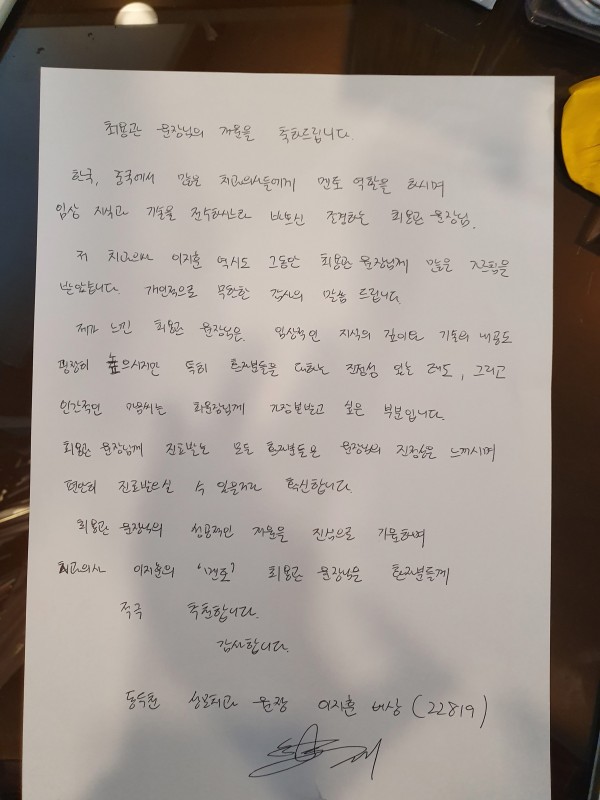 최용관 원장님의 개원을 축하드립니다.
한국, 중국에서 많은 치과의사들에게 멘토 역할을 하시며
임상 지식과 기술을 전수하시느라 바쁘신 존경하는 최용관 원장님.
저 치과의사 이지훈 역시도 그동안 최용관 원장님께 많은 가르침을
받았습니다. 개인적으로 무한한 감사의 말씀 드립니다.
제가 느낀 최용관 원장님은, 임상적인 지식의 깊이와 기술의 내공도
굉장히 높으시지만 특히 환자분들을 대하는 진정성 있는 태도, 그리고
인간적인 마음씨는 최원장님께 가장 본받고 싶은 부분입니다.
최용관 원장님께 진료받는 모든 환자분들은 원장님의 진정성을 느끼시며
편안히 진료받으실 수 있을거라 확신합니다.
최용관 원장님의 성공적인 개원을 진심으로 기원하며
치과의사 이지훈의 '멘토' 최용관 원장님을 환자분들께
적극 추천합니다.
감사합니다.
동수원 치과 원장 이지훈 배상 (22819)